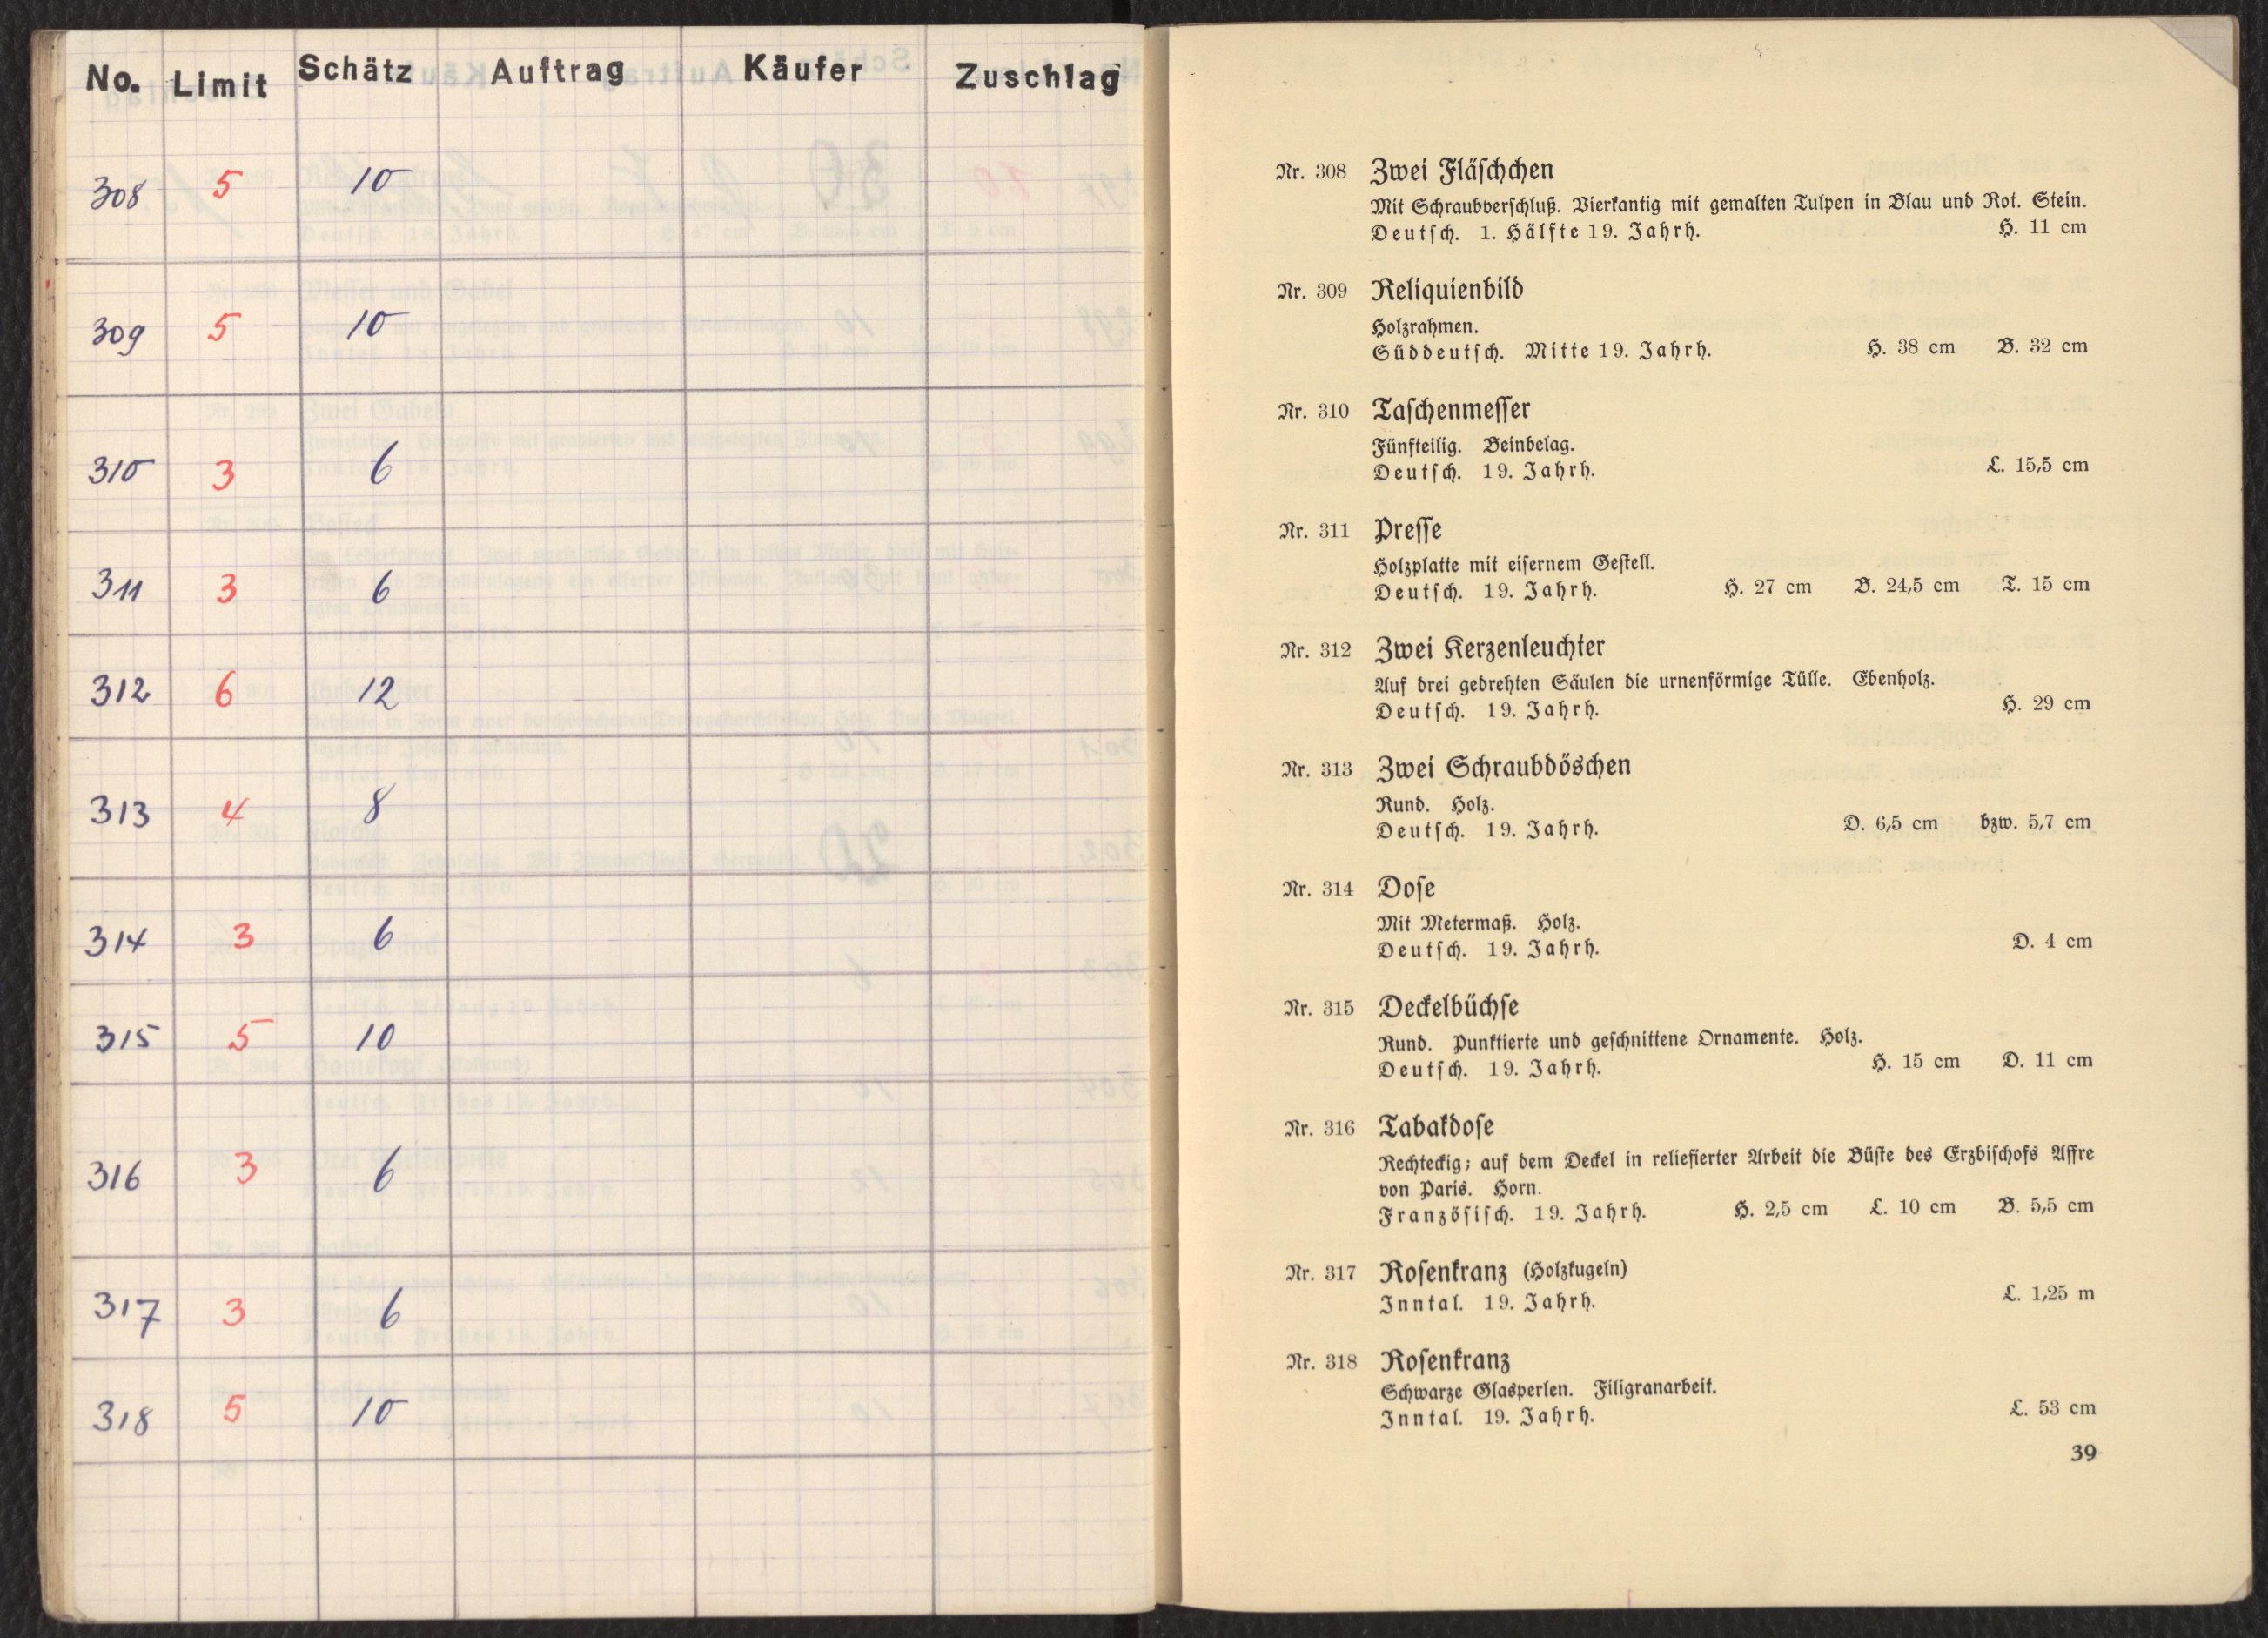 No. Limit Schätz Auftrag Käufer Zuschlag
308 5 10
309 5 10
310 3 6
311 3 6
312 6 12
313 4 8
314 3 6
315 5 10
316 3 6
317 3 6
318 5 10
Nr. 308 Zwei Fläschchen
Mit Schraubverschluß. Vierkantig mit gemalten Tulpen in Blau und Rot. Stein.
Deutsch. 1. Hälfte 19. Jahrh. H. 11 cm
Nr. 309 Reliquienbild
Holzrahmen.
Süddeutsch. Mitte 19. Jahrh. H. 38 cm B. 32 cm
Nr. 310 Taschenmesser
Fünfteilig. Beinbelag.
Deutsch. 19. Jahrh. L. 15,5 cm
Nr. 311 Presse
Holzplatte mit eisernem Gestell.
Deutsch. 19. Jahrh. H. 27 cm B. 24,5 cm T. 15 cm
Nr. 312 Zwei Kerzenleuchter
Auf drei gedrehten Säulen die urnenförmige Tülle. Ebenholz.
Deutsch. 19. Jahrh. H. 29 cm
Nr. 313 Zwei Schraubdöschen
Rund. Holz.
Deutsch. 19. Jahrh. D. 6,5 cm bzw. 5,7 cm
Nr. 314 Dose
Mit Metermaß. Holz.
Deutsch. 19. Jahrh. D. 4 cm
Nr. 315 Deckelbüchse
Rund. Punktierte und geschnittene Ornamente. Holz.
Deutsch. 19. Jahrh. H. 15 cm D. 11 cm
Nr. 316 Tabakdose
Rechteckig; auf dem Deckel in reliefierter Arbeit die Büste des Erzbischofs Affre
von Paris. Horn.
Französisch. 19. Jahrh. H. 2,5 cm L. 10 cm B. 5,5 cm
Nr. 317 Rosenkranz (Holzkugeln)
Inntal. 19. Jahrh. L. 1,25 m
Nr. 318 Rosenkranz
Schwarze Glasperlen. Filigranarbeit.
Inntal. 19. Jahrh. L. 53 cm
39